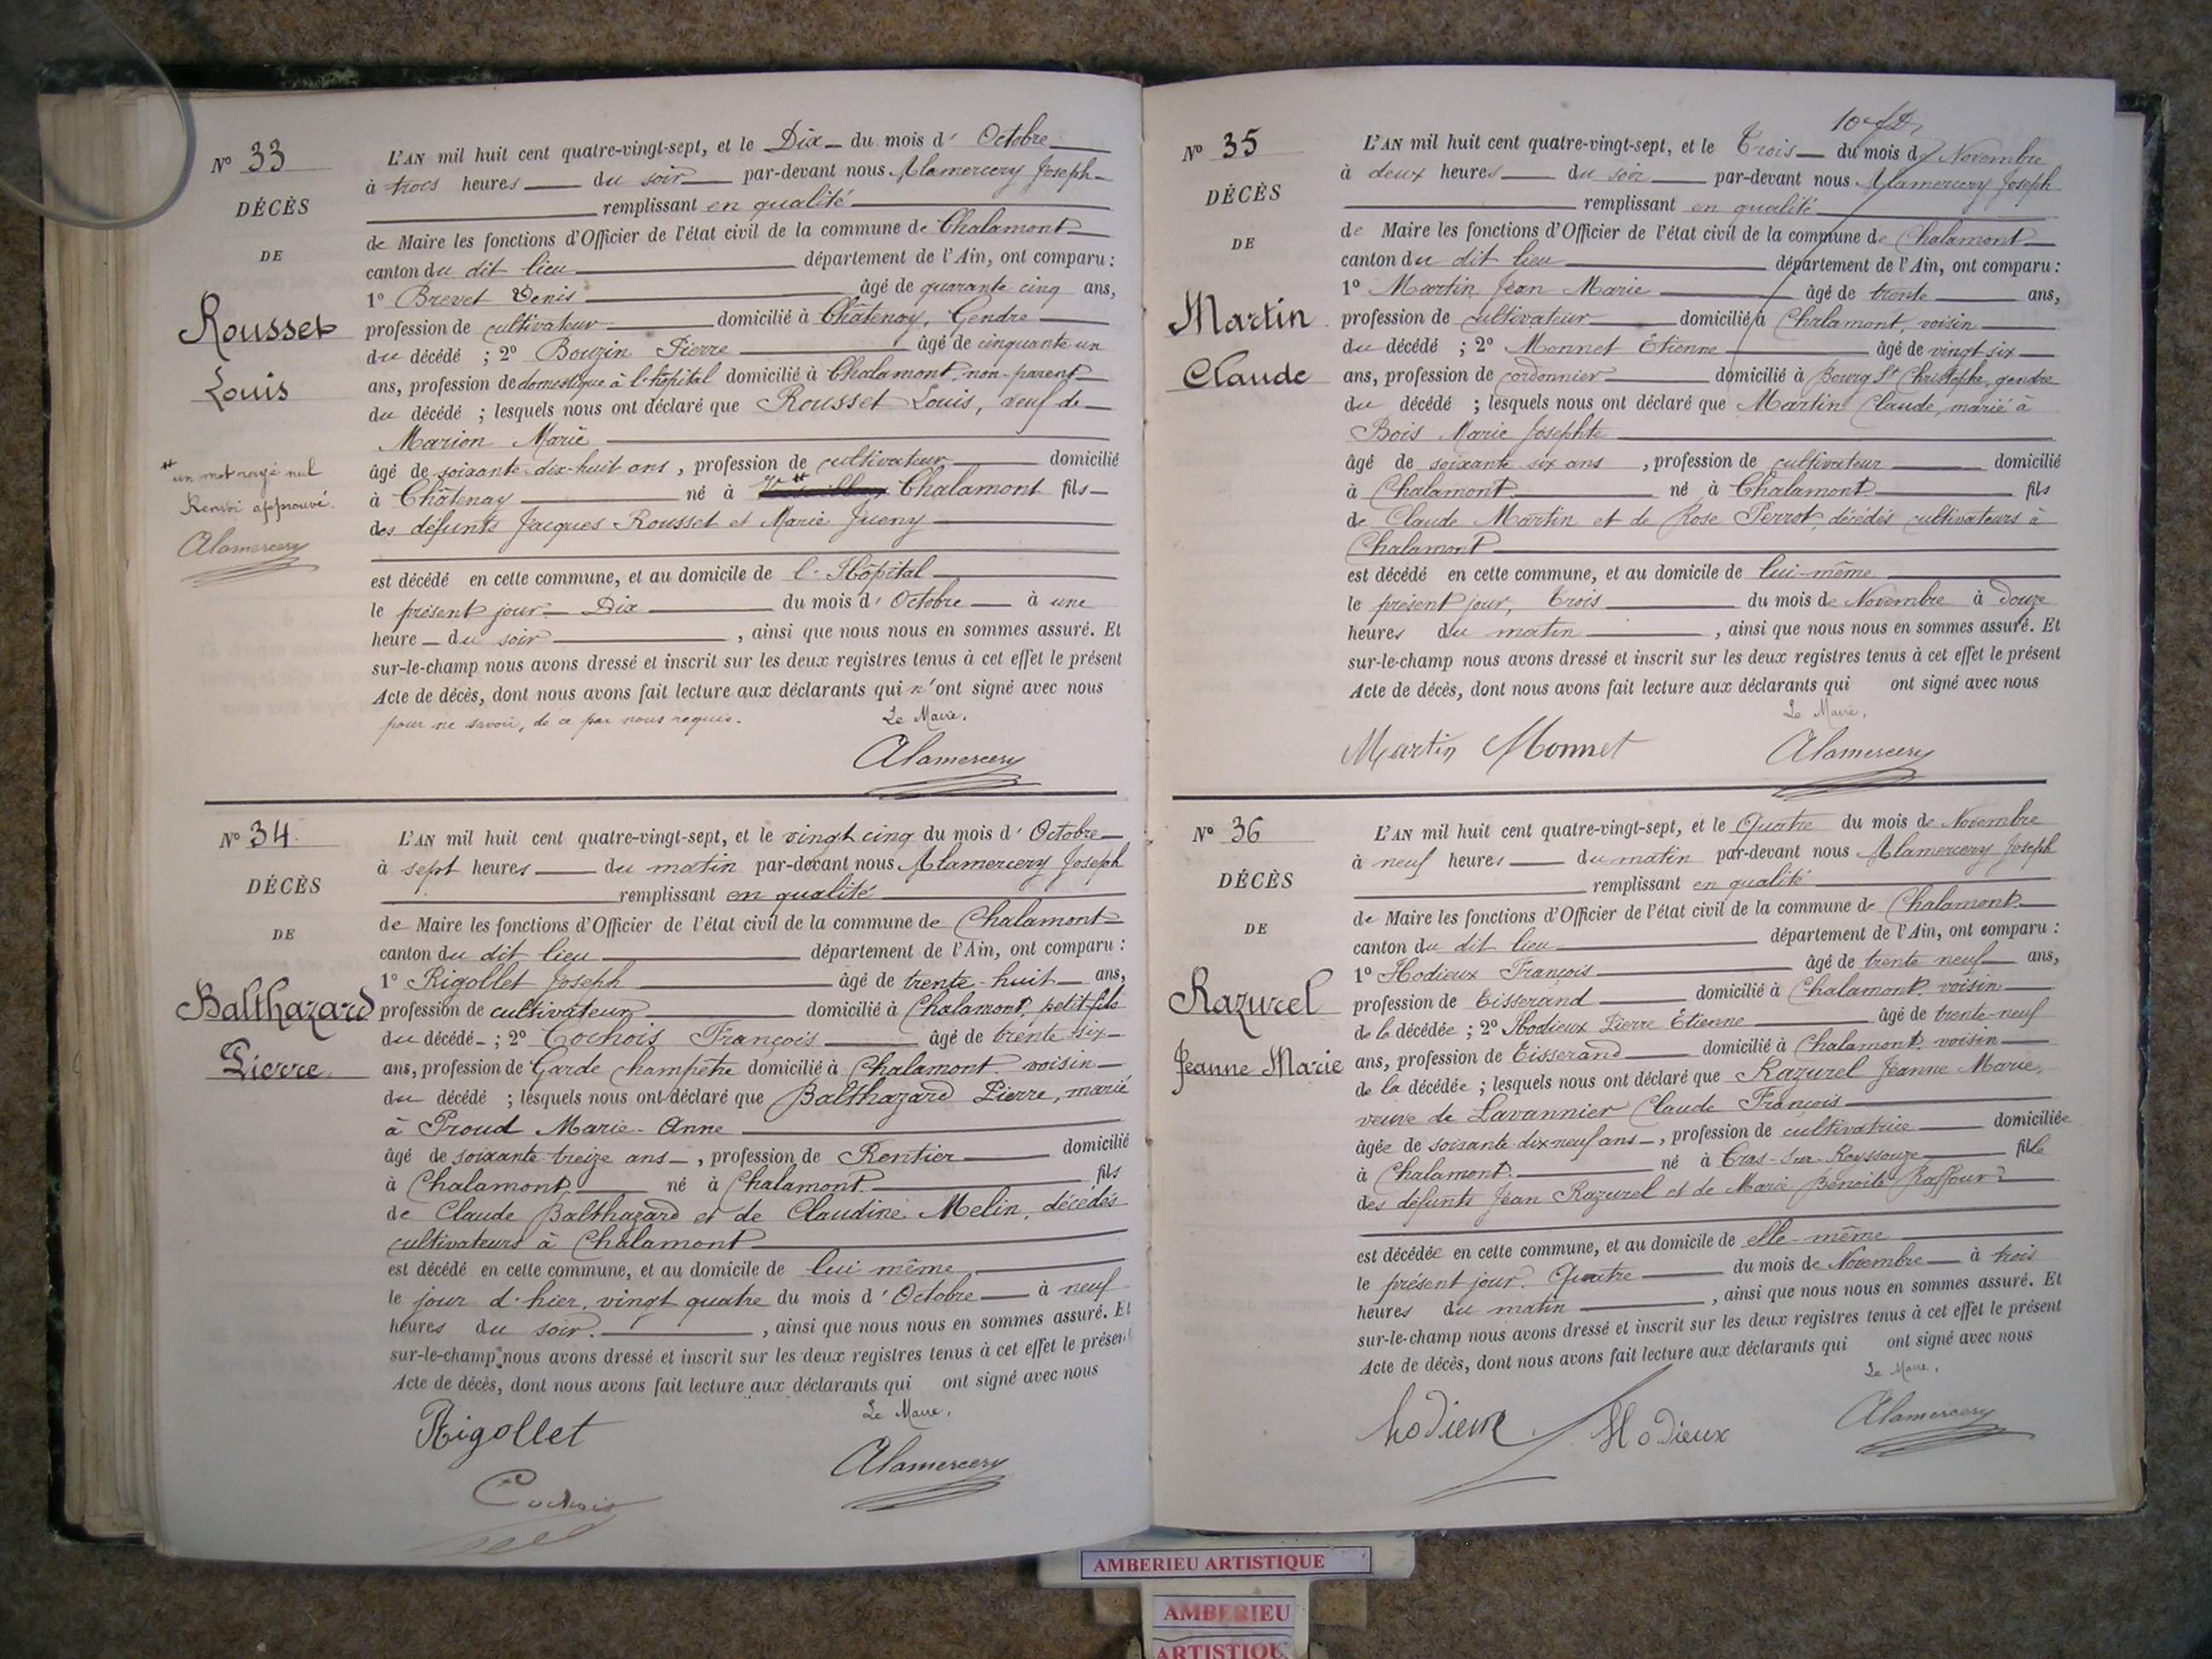 N° 33
DÉCÈS
DE
Rousset
Louis
un mot rayé nul
Renvoi approuvé.
Alamercery
L'AN mil huit cent quatre-vingt-sept, et le Dix du mois d' Octobre
à trois heures du soir par-devant nous Alamercery Joseph
remplissant en qualité
de Maire les fonctions d'Officier de l'état civil de la commune de Chalamont
canton du dit lieu département de l'Ain, ont comparu :
1° Brevet Denis âgé de quarante cinq ans,
profession de cultivateur domicilié à Châtenay, Gendre
du décédé ; 2° Bouzin Pierre âgé de cinquante un
ans, profession de domestique à l'hôpital domicilié à Chalamont, non-parent
du décédé ; lesquels nous ont déclaré que Rousset Louis, veuf de
Marion Marie
âgé de soixante-dix-huit ans, profession de cultivateur domicilié
à Châtenay né à Chalamont fils
des défunts Jacques Rousset et Marie Jueny
est décédé en cette commune, et au domicile de l'Hôpital
le présent jour Dix du mois d' Octobre à une
heure du soir, ainsi que nous nous en sommes assuré. Et
sur-le-champ nous avons dressé et inscrit sur les deux registres tenus à cet effet le présent
Acte de décès, dont nous avons fait lecture aux déclarants qui n'ont signé avec nous
pour ne savoir, de ce par nous requis.
Le Maire,
Alamercery
N° 34
DÉCÈS
DE
Balthazard
Pierre
L'AN mil huit cent quatre-vingt-sept, et le vingt cinq du mois d' Octobre
à sept heures du matin par-devant nous Alamercery Joseph
remplissant en qualité
de Maire les fonctions d'Officier de l'état civil de la commune de Chalamont
canton du dit lieu département de l'Ain, ont comparu :
1° Rigollet Joseph âgé de trente-huit ans,
profession de cultivateur domicilié à Chalamont, petit-fils
du décédé ; 2° Cochois François âgé de trente six
ans, profession de Garde champêtre domicilié à Chalamont voisin
du décédé ; lesquels nous ont déclaré que Balthazard Pierre, marié
à Proud Marie-Anne
âgé de soixante treize ans, profession de Rentier domicilié
à Chalamont né à Chalamont fils
de Claude Balthazard et de Claudine Melin, décédés
cultivateurs à Chalamont
est décédé en cette commune, et au domicile de lui même
le jour d'hier, vingt quatre du mois d' Octobre à neuf
heures du soir, ainsi que nous nous en sommes assuré. Et
sur-le-champ nous avons dressé et inscrit sur les deux registres tenus à cet effet le présent
Acte de décès, dont nous avons fait lecture aux déclarants qui ont signé avec nous
Le Maire,
Rigollet
Alamercery
Cochois
N° 35
DÉCÈS
DE
Martin
Claude
L'AN mil huit cent quatre-vingt-sept, et le Trois du mois de Novembre
à deux heures du soir par-devant nous Alamercery Joseph
remplissant en qualité
de Maire les fonctions d'Officier de l'état civil de la commune de Chalamont
canton du dit lieu département de l'Ain, ont comparu :
1° Martin Jean Marie âgé de trente ans,
profession de cultivateur domicilié à Chalamont, voisin
du décédé ; 2° Monnet Étienne âgé de vingt six
ans, profession de cordonnier domicilié à Bourg St Christophe, gendre
du décédé ; lesquels nous ont déclaré que Martin Claude, marié à
Bois Marie Josephte
âgé de soixante six ans, profession de cultivateur domicilié
à Chalamont né à Chalamont fils
de Claude Martin et de Rose Perrot, décédés cultivateurs à
Chalamont
est décédé en cette commune, et au domicile de lui-même
le présent jour, Trois du mois de Novembre à douze
heures du matin, ainsi que nous nous en sommes assuré. Et
sur-le-champ nous avons dressé et inscrit sur les deux registres tenus à cet effet le présent
Acte de décès, dont nous avons fait lecture aux déclarants qui ont signé avec nous
Le Maire,
Martin Monnet Alamercery
N° 36
DÉCÈS
DE
Razurel
Jeanne Marie
L'AN mil huit cent quatre-vingt-sept, et le Quatre du mois de Novembre
à neuf heures du matin par-devant nous Alamercery Joseph
remplissant en qualité
de Maire les fonctions d'Officier de l'état civil de la commune de Chalamont
canton du dit lieu département de l'Ain, ont comparu :
1° Hodieux François âgé de trente neuf ans,
profession de Tisserand domicilié à Chalamont voisin
de la décédée ; 2° Hodieux Pierre Étienne âgé de trente-neuf
ans, profession de Tisserand domicilié à Chalamont voisin
de la décédée ; lesquels nous ont déclaré que Razurel Jeanne Marie,
veuve de Lavannier Claude François
âgée de soixante dix-neuf ans, profession de cultivatrice domiciliée
à Chalamont né à Cras-Sur-Reyssouze fille
des défunts Jean Razurel et de Marie Benoîte Raffour
est décédée en cette commune, et au domicile de elle-même
le présent jour Quatre du mois de Novembre à trois
heures du matin, ainsi que nous nous en sommes assuré. Et
sur-le-champ nous avons dressé et inscrit sur les deux registres tenus à cet effet le présent
Acte de décès, dont nous avons fait lecture aux déclarants qui ont signé avec nous
Le Maire,
hodieux Hodieux Alamercery
AMBERIEU ARTISTIQUE
AMBERIEU
ARTISTIQU